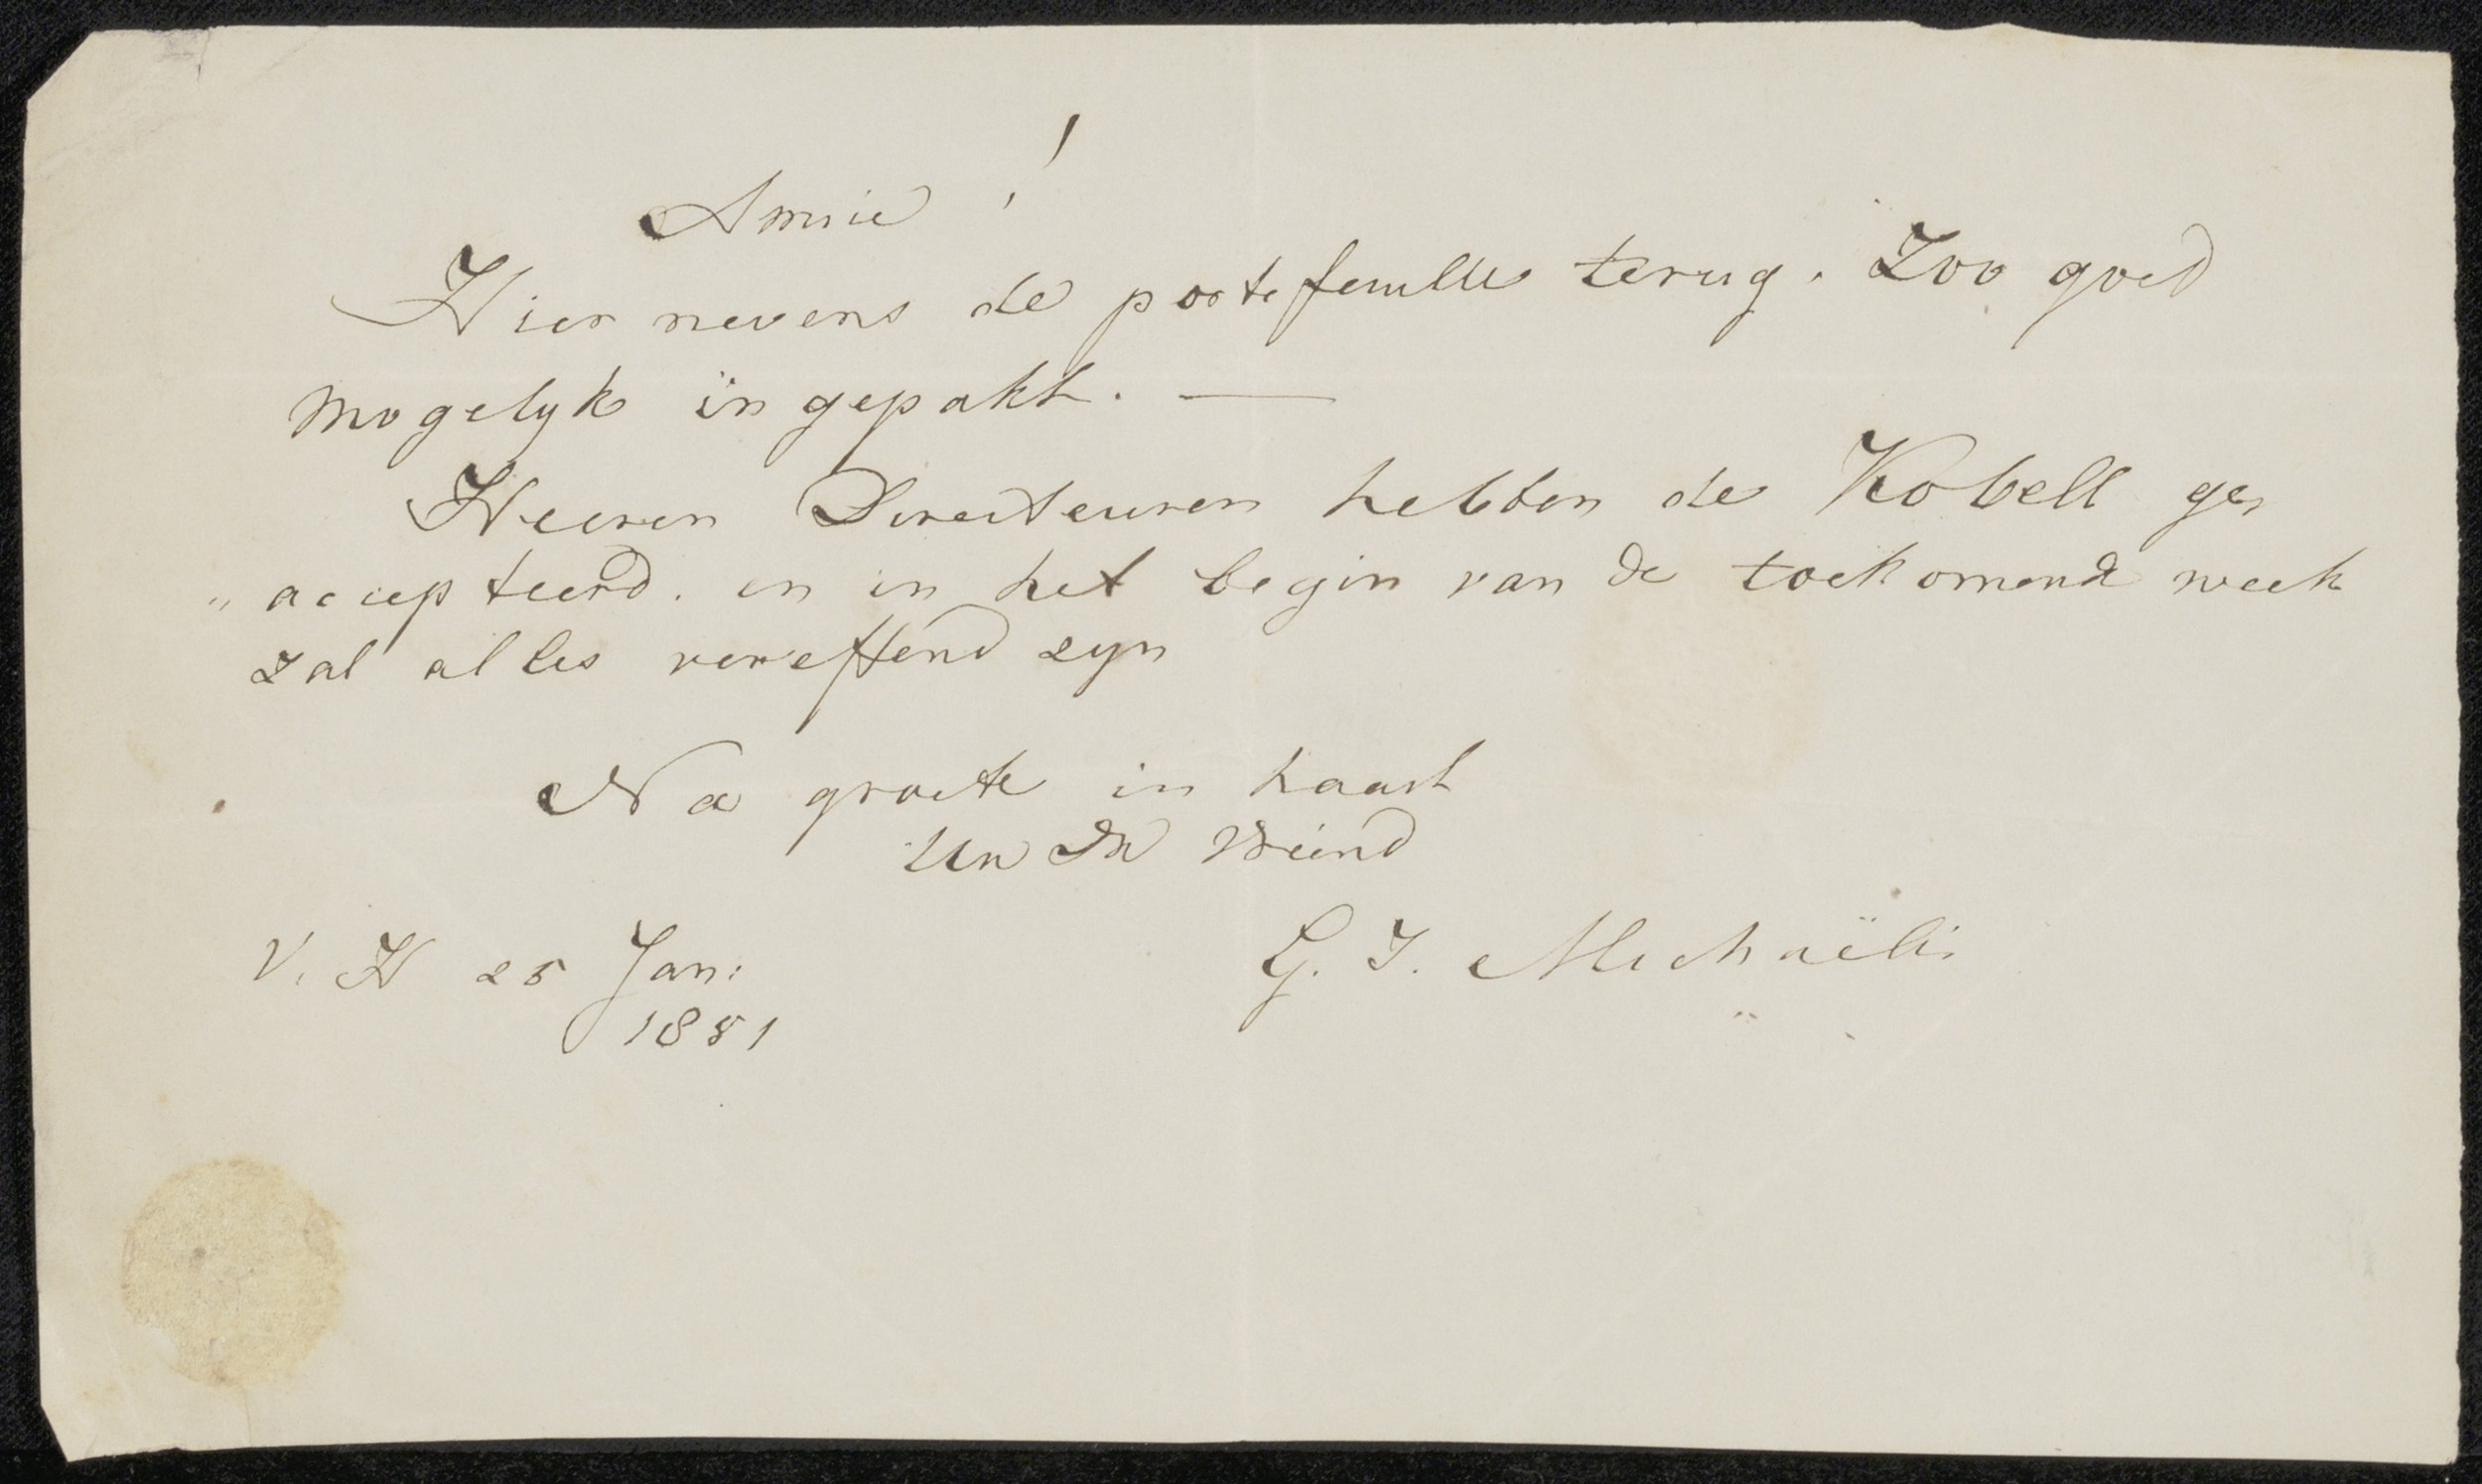 Amice!
Hier nevens de portefeuille terug. Zoo goed
mogelyk ingepakt. —
Heeren Directeuren hebben de Kobell ge„
„accepteerd. en in het begin van de toekomende week
zal alles vereffend zyn
Na groete in haast
Uw Dw Vriend
V. H 25 Jan: G. J. Michaëlis
1851